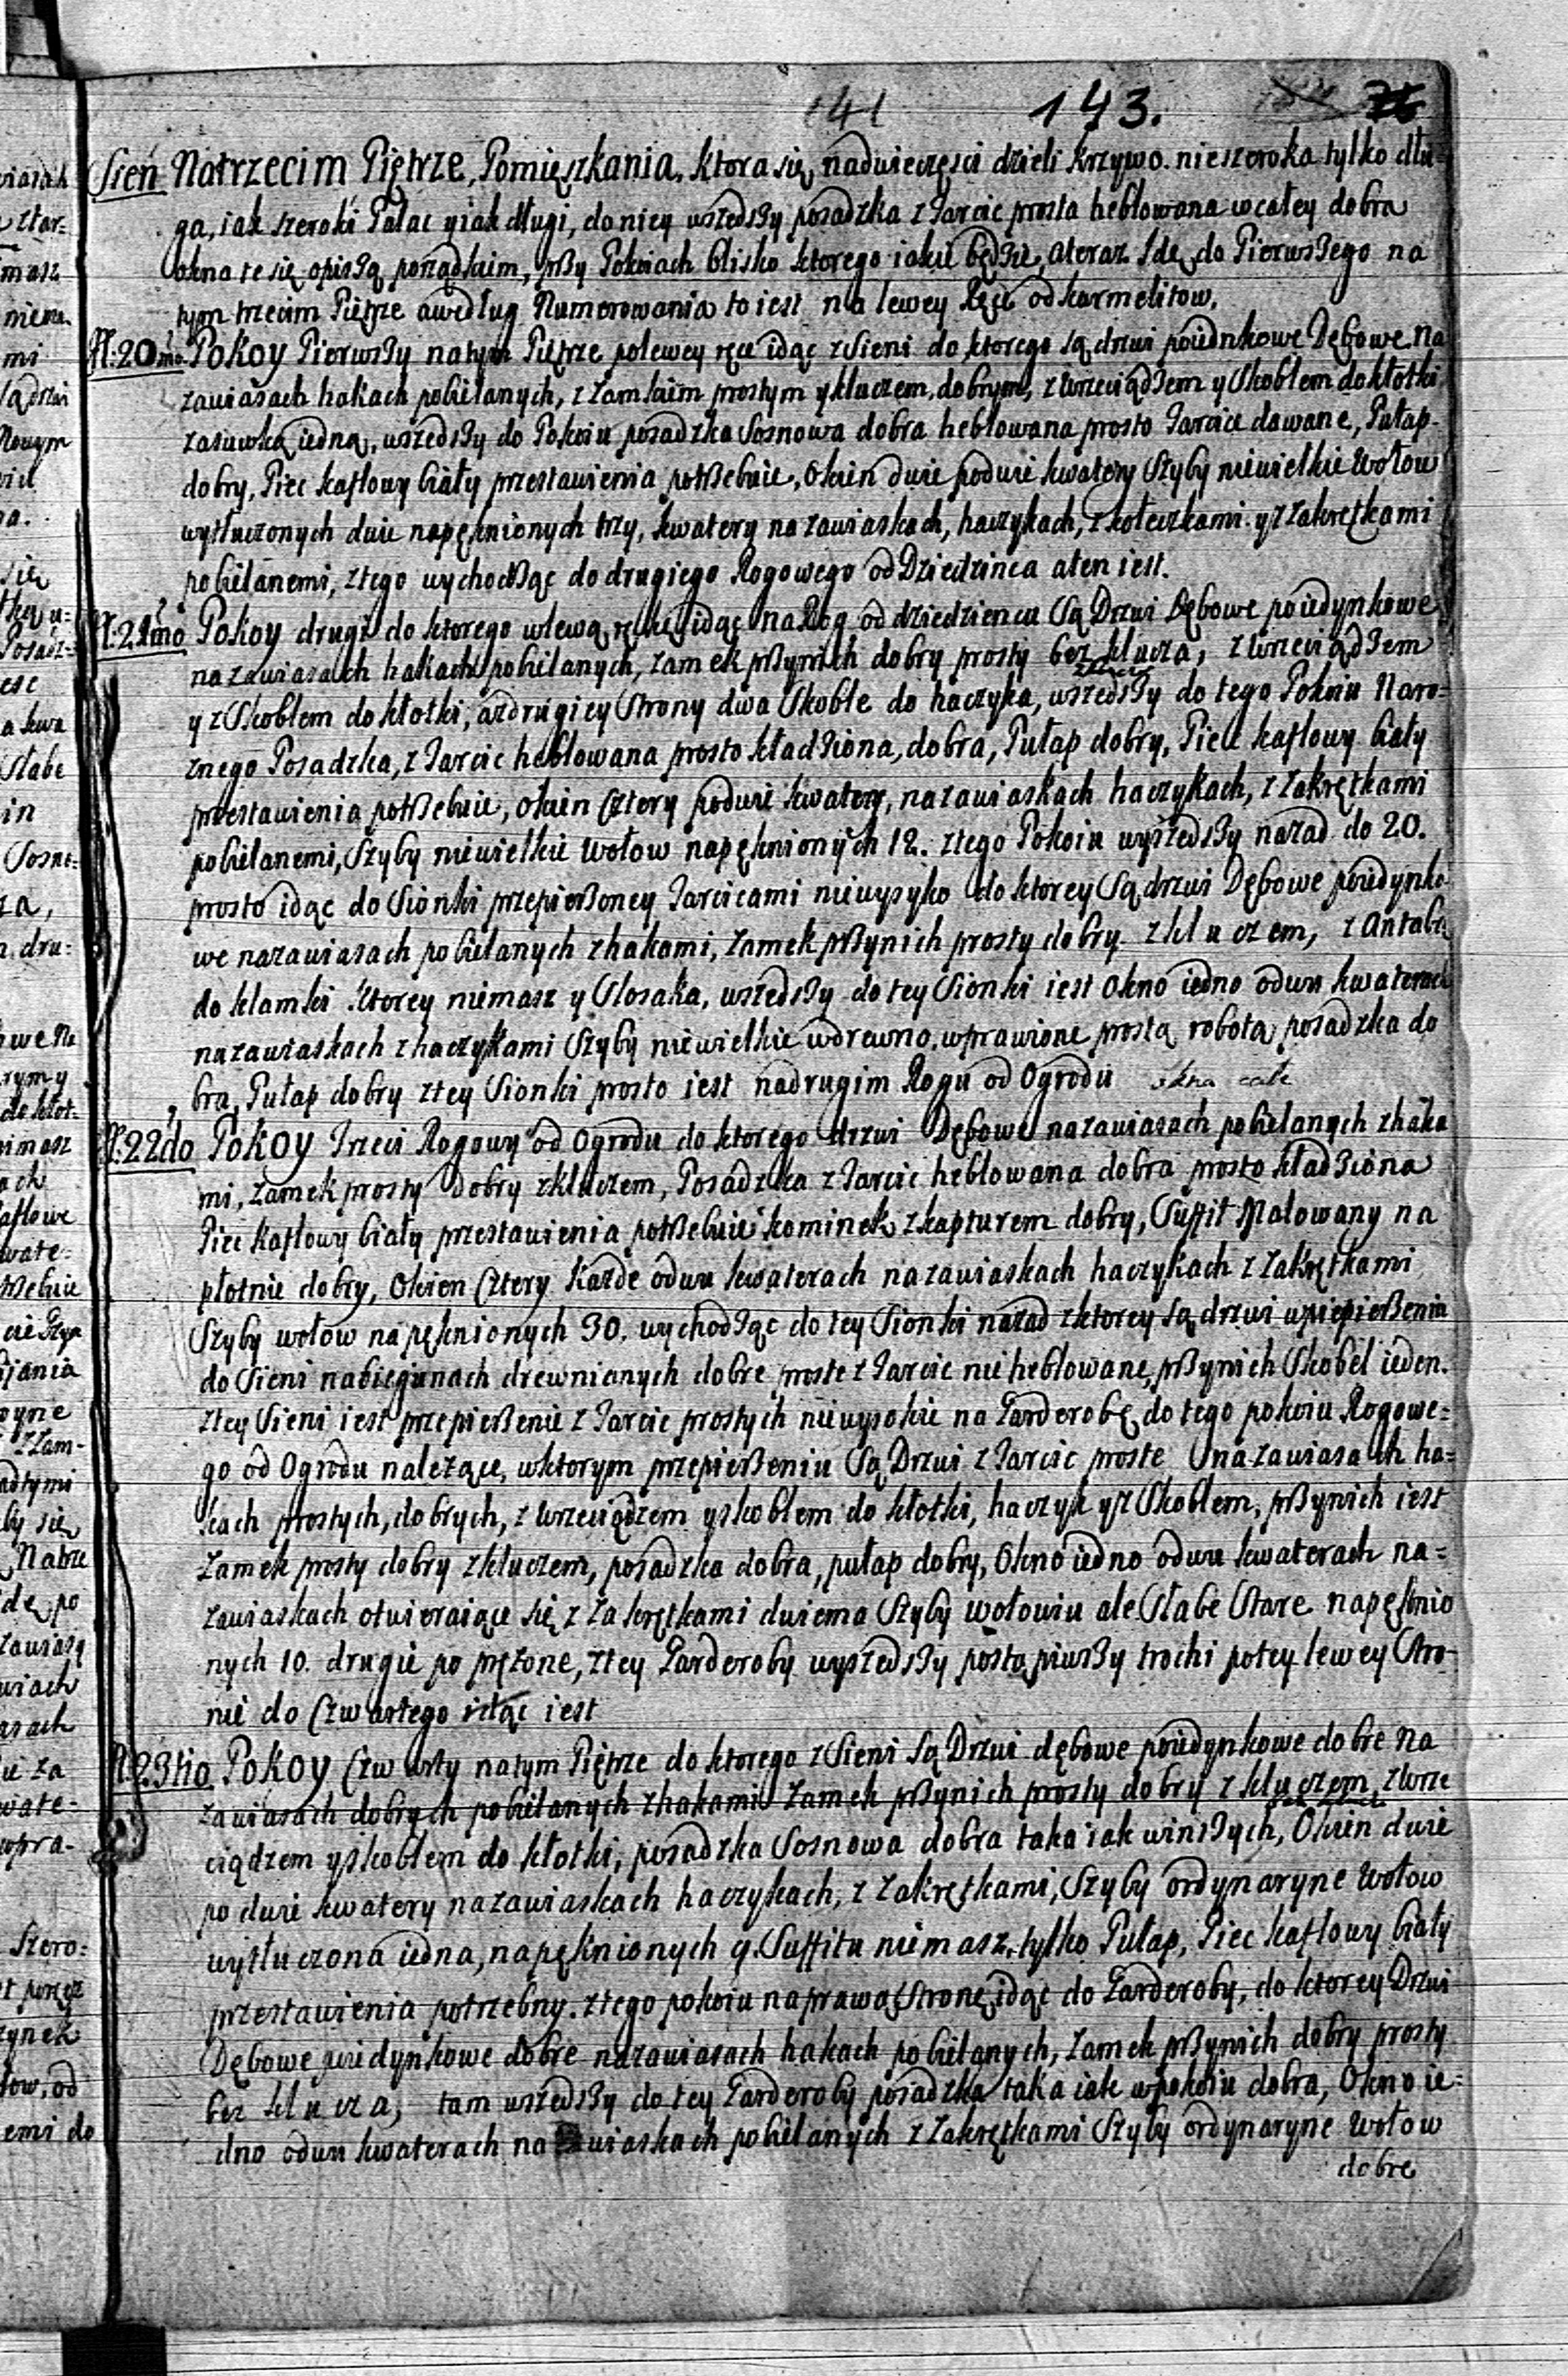 141 143.
Sień Natrzecim Piętrze, Pomięszkania. ktora się nadwieczęsci dzieli krzywo. nieszeroka tylko dłu-
ga, iak szeroki Pałac yiak długi, do niey wszedszy posadzka z Tarcic prosta heblowana wcałey dobra
okna te się opiszą porządkim, przy Pokoiach blisko ktorego iakie będzie, ateraz Idę do Pierwszego na
tym trzecim Piętrze awedług Numerowania to iest na lewey Ręce od karmelitow.
N:20mo Pokoy Pierwszy natym Piętrze polewey ręce idąc zSieni do ktorego są drzwi poiednkowe Dębowe Na
zawiasach hakach pobielanych, z zamkiem prostym ykluczem, dobrym, z wrzeciądzem y Skoblem do kłotki,
zasuwką iedną, wszedszy do Pokoiu posadzka Sosnowa dobra heblowana prosto Tarcice dawane, Pułap
dobry, Piec kaflowy biały przestawienia potrzebuie, Okien dwie podwie kwatery Szyby niewielkie wołow
wytłuczonych dwie napęknionych trzy, kwatery na zawiaskach, haczykach, z kołeczkami y z zakrętkami
pobielanemi, ztego wychodząc do drugiego Rogowego od Dziedzińca aten iest.
N:21mo Pokoy drugi do ktorego wlewą rękę idąc na Rog od dziedzienca Są Drzwi Dębowe poiedynkowe
na zawiasach hakach pobielanych, zamek przynich dobry prosty bez klucza, z wrzeciądzem
y z Skoblem do kłotki, azdrugiey Strony dwa Skoble do haczyka, wszedszy do tego Pokoiu Naro-
znego Posadzka, z Tarcic heblowana prosto kładziona, dobra, Pułap dobry, Piec kaflowy biały
przestawienia potrzebuie, okien Cztery podwie kwatery, nazawiaskach haczykach, z zakrętkami
pobielanemi, Szyby niewielkie wołow napęknionych 12. ztego Pokoiu wyszedszy nazad do 20.
prosto idąc do Sionki przepierzoney Tarcicami niewysyko do ktorey Są drzwi Dębowe poiedynko
we nazawiasach pobielanych zhakami, zamek przynich prosty dobry z kluczem, z Antabą
do klamki ktorey niemasz y Slosaka, wszedszy do tey Sionki iest okno iedno odwu kwaterach
nazawiaskach zhaczykami Szyby niewielkie wdrewno, wprawione prostą robotą, posadzka do
bra, Pułap dobry ztey Sionki prosto iest nadrugim Rogu od Ogrodu okna całe
N:22do Pokoy Trzeci Rogowy od Ogrodu do ktorego drzwi Dębowe nazawiasach pobielanych zhaka
mi, zamek prosty dobry zkluczem, Posadzka z Tarcic heblowana dobra prosto kładziona
Piec kaflowy biały przestawienia potrzebuie kominek z kapturem dobry, Suffit Malowany na
płotnie dobry, Okien Cztery każde odwu kwaterach nazawiaskach haczykach z zakrętkami
Szyby wołow napęknionych 30. wychodząc do tey Sionki nazad zktorey są drzwi wprzepierzenia
do Sieni nabiegunach drewnianych dobre proste z Tarcic nie heblowane, przynich Skobel ieden.
ztey Sieni iest przepierzenie z Tarcic prostych niewysokie na Garderobę, do tego pokoiu Rogowe-
go od Ogrodu należące, wktorym przepierzeniu Są Drzwi z Tarcic proste nazawiasach ha-
kach prostych, dobrych, z wrzeciądzem yskoblem do kłotki, haczyk y z Skoblem, przynich iest
zamek prosty dobry zkluczem, posadzka dobra, pułap dobry, Okno iedno odwu kwaterach na-
zawiaskach otwieraiące się z zakrętkami dwiema Szyby wołowiu ale Słabe Stare napęknio
nych 10. drugie po prężone, ztey Garderoby wyszedszy postąpiwszy trochi potey lewey Stro-
nie do Czwartego idąc iest
N:23tio Pokoy Czwarty natym Piętrze do ktorego zSieni są Drzwi dębowe poiedynkowe dobre Na
zawiasach dobrych pobielanych zhakami zamek przynich prosty dobry z kluczem, z wrze
ciądzem yskoblem do kłotki, posadzka Sosnowa dobra taka iak winszych, Okien dwie
po dwie kwatery nazawiaskach haczykach, z zakrętkami, Szyby ordynaryne wołow
wytłuczona iedna, napęknionych 9. Suffitu niemasz, tylko Pułap, Piec kaflowy biały
przestawienia potrzebny. ztego pokoiu naprawą Stronę idąc do Garderoby, do ktorey Drzwi
Dębowe poiedynkowe dobre nazawiasach hakach pobielanych, zamek przynich dobry prosty
bez klucza, tam wszedszy do tey Garderoby posadzka taka iak wpokoiu dobra, Okno ie-
dno odwu kwaterach nazawiaskach pobielanych z zakrętkami Szyby ordynaryne wołow
dobre